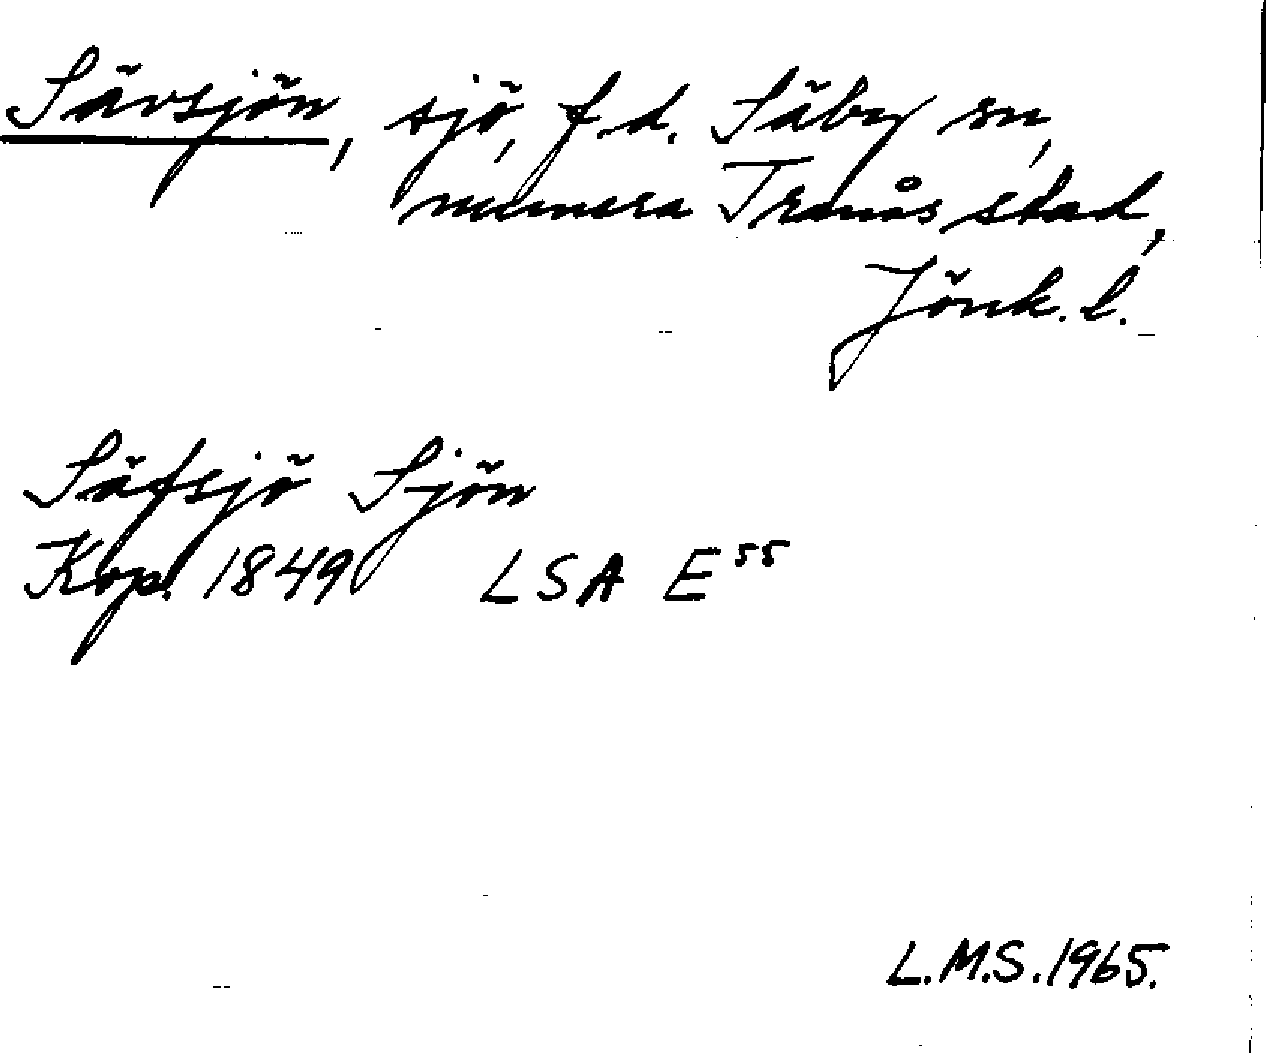 Sävsjön, sjö, f.d. Säby sn,
numera Tranås stad,
Jönk. l.
Säfsjö Sjön
Kop. 1849 LSA E 55
L.M.S. 1965.